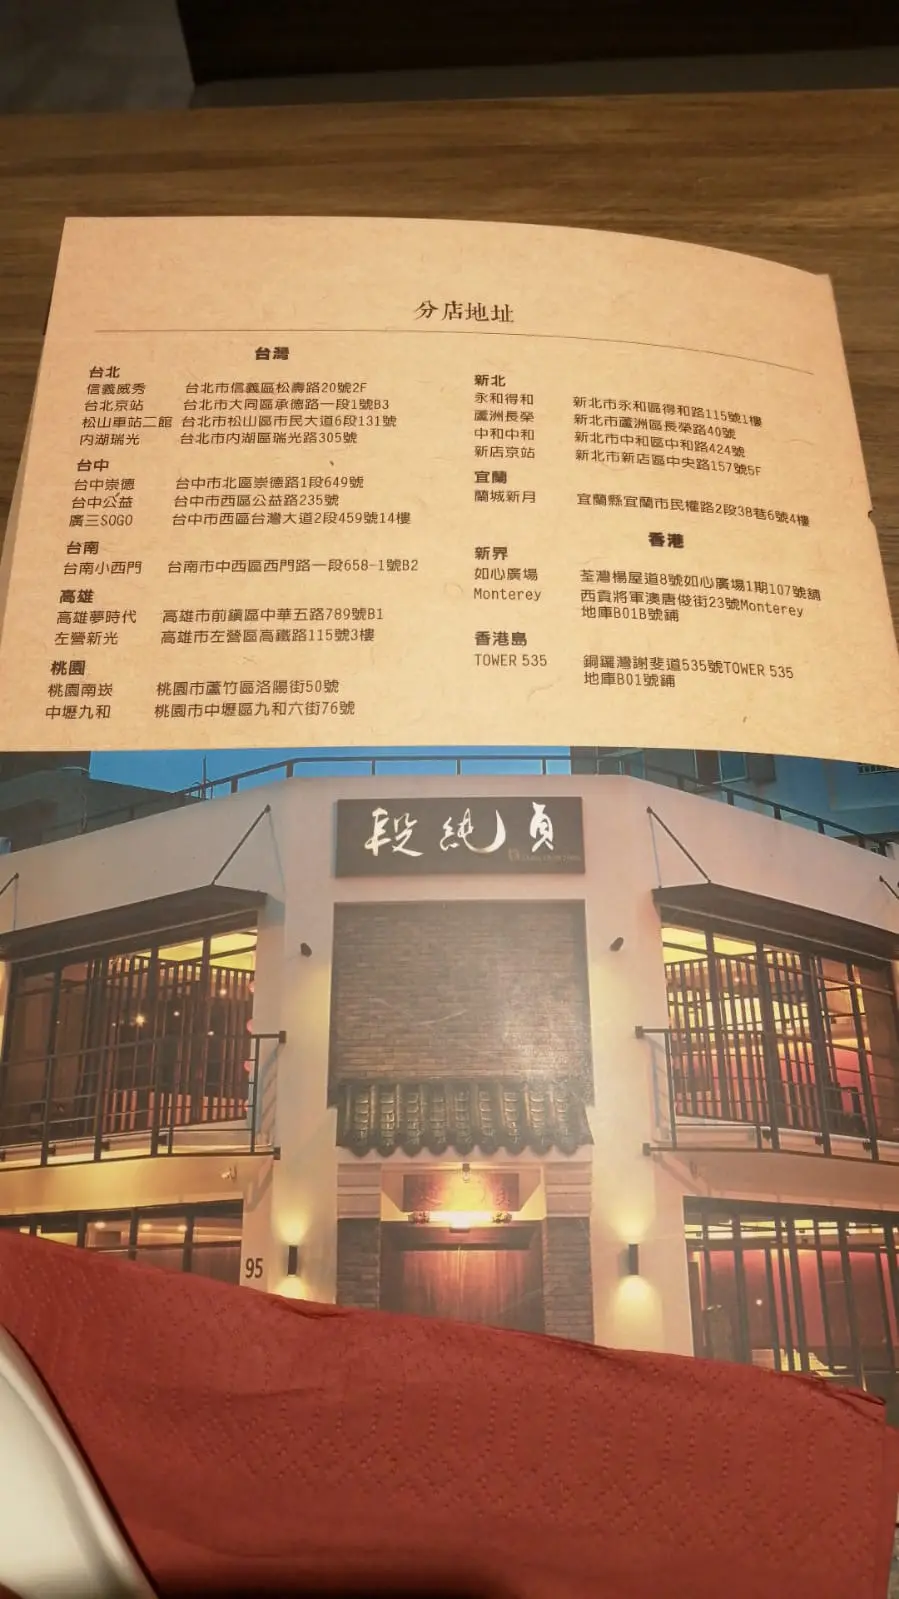 分店地址
台灣
台北
信義威秀 台北市信義區松壽路20號2F
台北京站 台北市大同區承德路一段1號B3
松山車站二館 台北市松山區市民大道6段131號
內湖瑞光 台北市內湖區瑞光路305號
台中
台中崇德 台中市北區崇德路1段649號
台中公益 台中市西區公益路235號
廣三SOGO 台中市西區台灣大道2段459號14樓
台南
台南小西門 台南市中西區西門路一段658-1號B2
高雄
高雄夢時代 高雄市前鎮區中華五路789號B1
左營新光 高雄市左營區高鐵路115號3樓
桃園
桃園南崁 桃園市蘆竹區洛陽街50號
中壢九和 桃園市中壢區九和六街76號
新北
永和得和 新北市永和區得和路115號1樓
蘆洲長榮 新北市蘆洲區長榮路40號
中和中和 新北市中和區中和路424號
新店京站 新北市新店區中央路157號5F
宜蘭
蘭城新月 宜蘭縣宜蘭市民權路2段38巷6號4樓
香港
新界
如心廣場 荃灣楊屋道8號如心廣場1期107號舖
Monterey 西貢將軍澳唐俊街23號Monterey
地庫B01B號鋪
香港島
TOWER 535 銅鑼灣謝斐道535號TOWER 535
地庫B01號鋪
段純貞
95